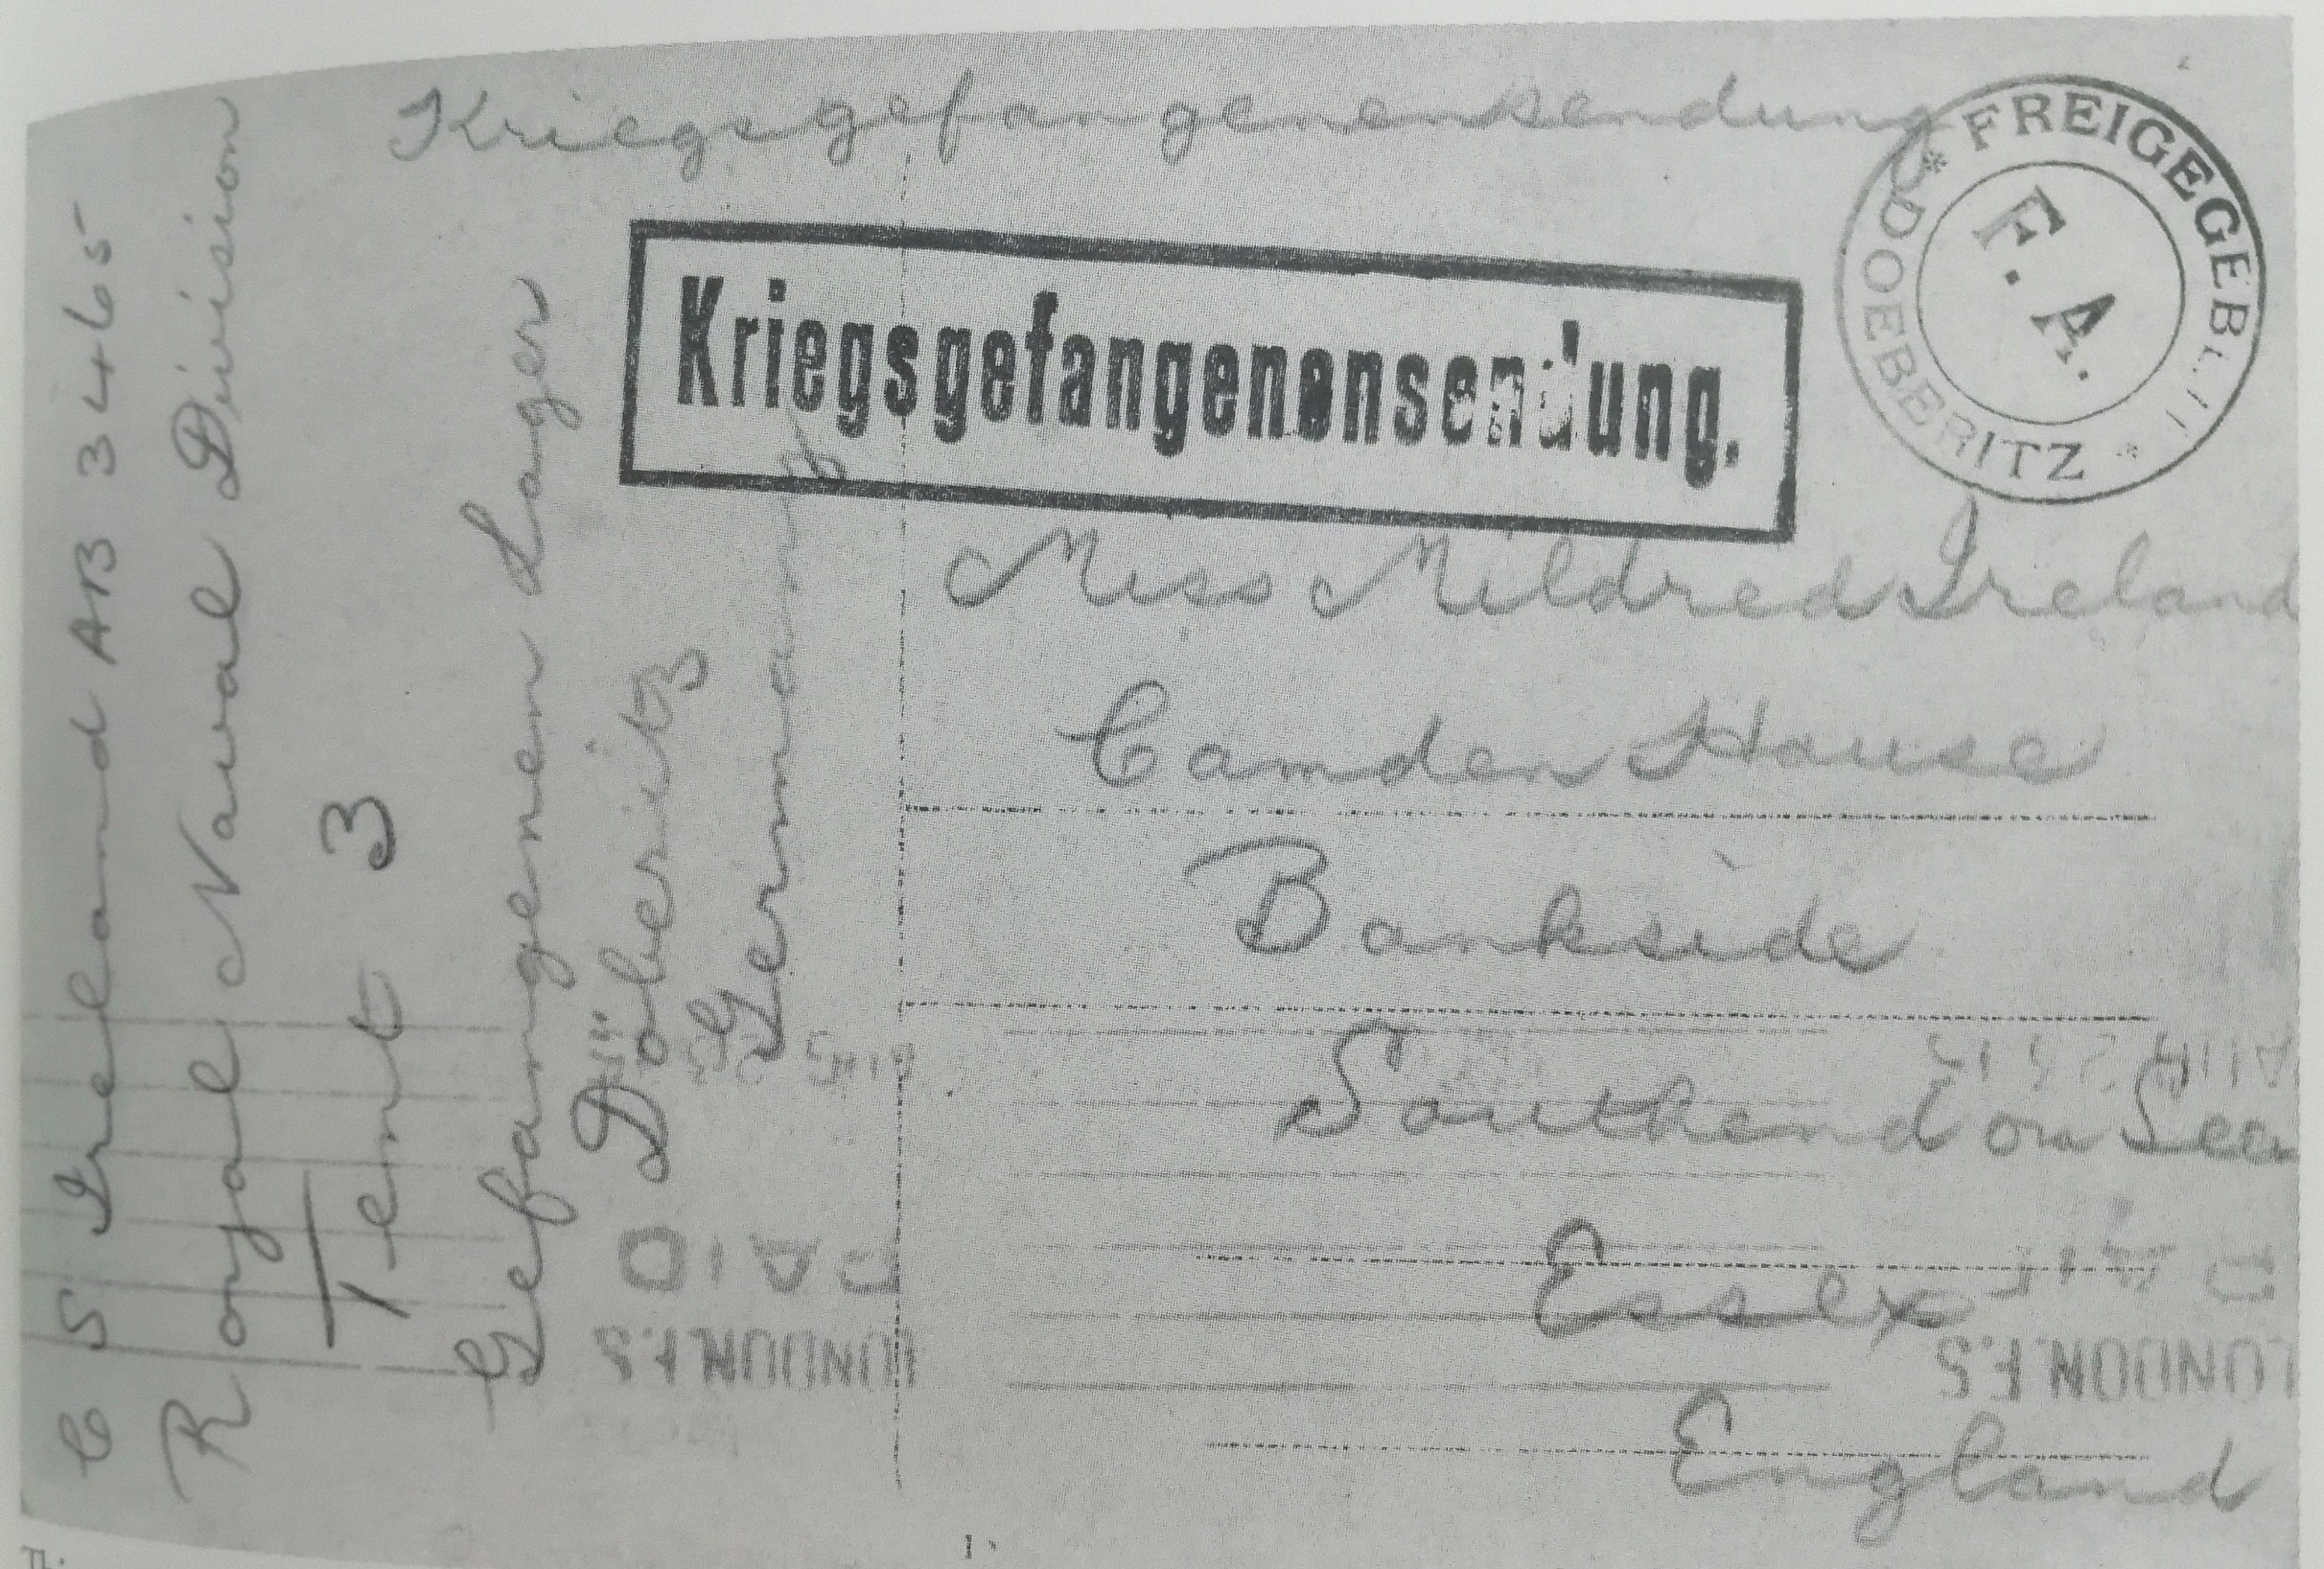 Kriegsgefangenensendung
FREIGEGEBEN
F. A.
DOEBERITZ
Kriegsgefangenensendung.
C S Ireland AB 3465
Royal Naval Division
Tent 3
Gefangenen Lager
Döberitz
Germany
Miss Mildred Ireland
Camden House
Bankside
Southend on Sea
Essex
England
PAID
LONDON.F.S
PAID
LONDON.F.S